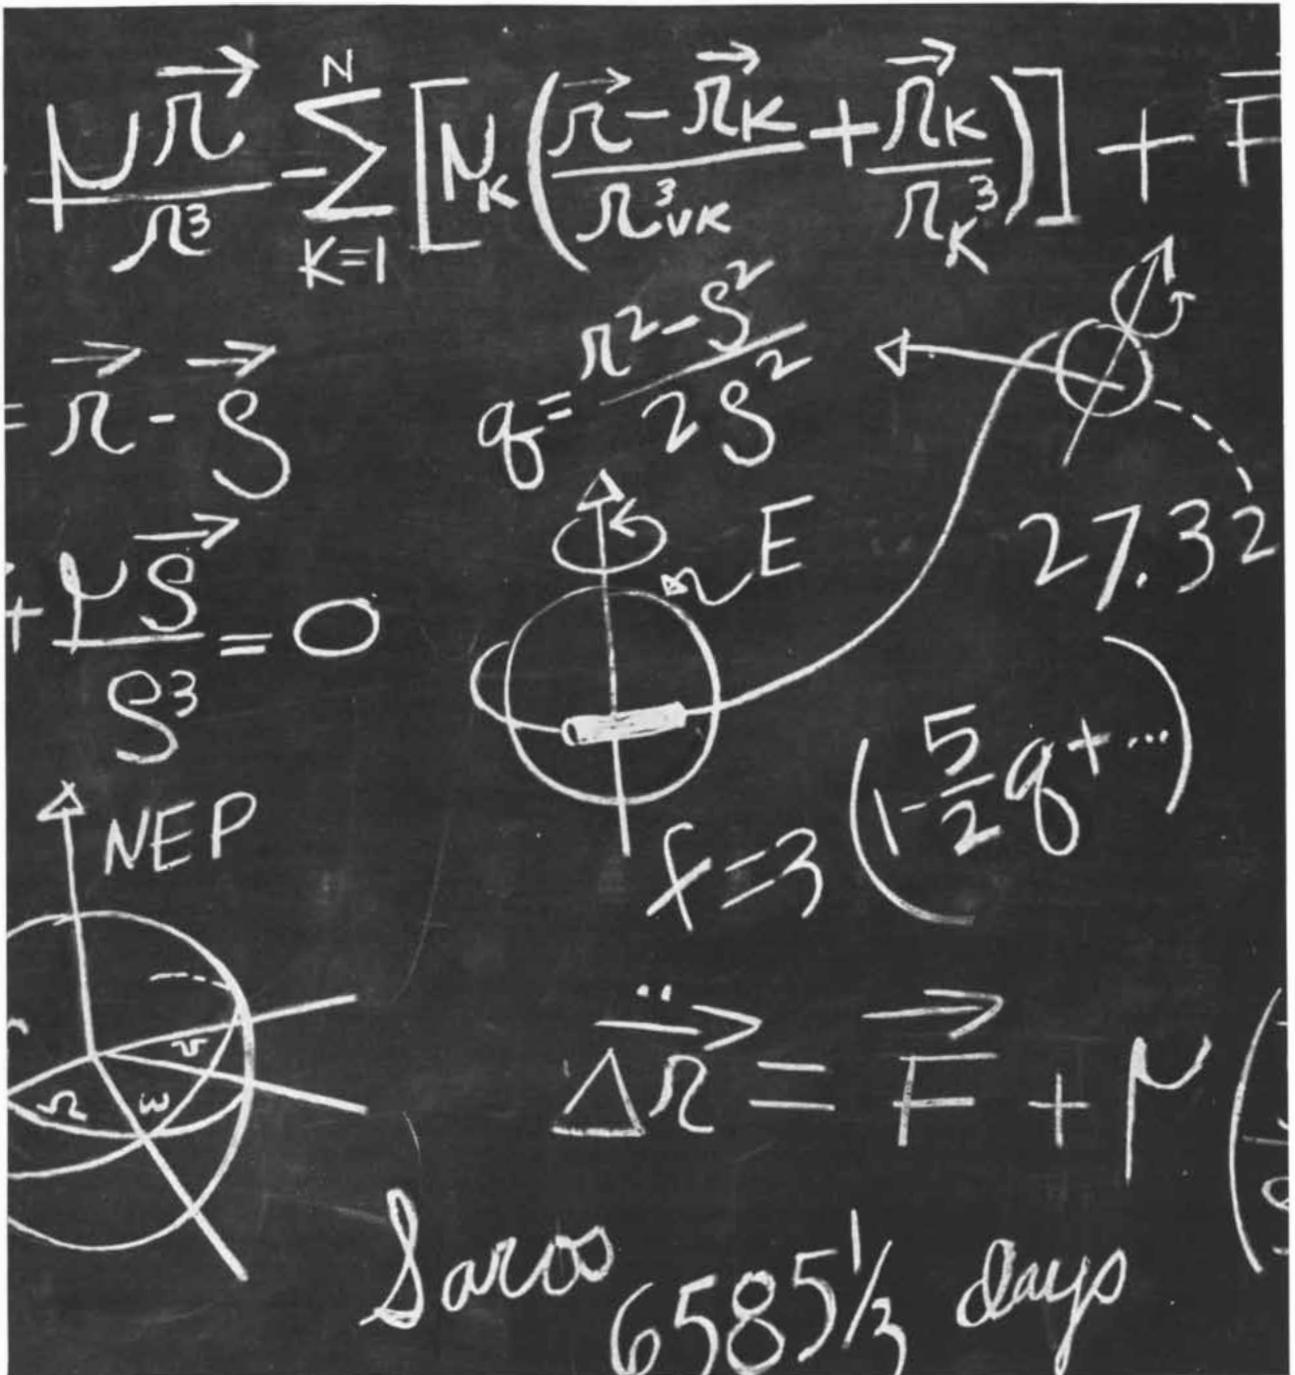 μr⃗/r³ - Σ_{K=1}^{N} [μ_K ((r⃗ - r⃗_K)/r³_{VK} + r⃗_K/r_K³)] + F
= r⃗ - ρ⃗
q = (r² - ρ²)/2ρ²
27.32
E
+ μρ⃗/ρ³ = 0
f = 3 (1 - 5/2 q + ...)
NEP
v
Ω ω
Δr⃗̈ = F⃗ + μ (
Saros 6585 1/3 days